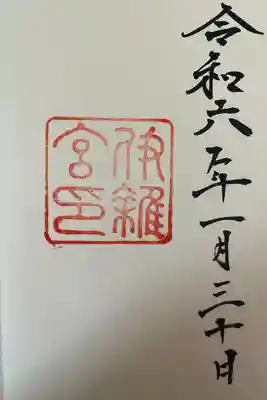 令和六年一月三十日
伊雜宮印